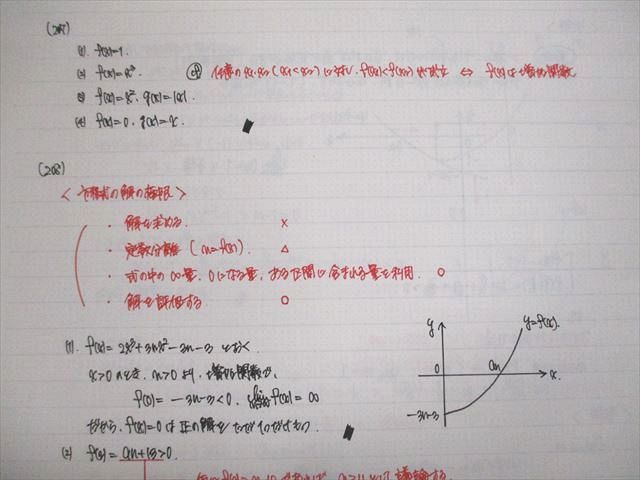 (207)
(1) f(x)=1.
(2) f(x)=x³. 任意のx₁,x₂(x₁<x₂)に対し,f(x₁)<f(x₂)が成立 ⇔ f(x)は増加関数
(3) f(x)=x², g(x)=|x|.
(4) f(x)=0, g(x)=x.
(208)
<方程式の解の極限>
・解を求める. ×
・定数分離(an=f(x)). △
・式の中の∞量,0になる量,ある区間に含まれる量を利用. ○
・解を評価する. ○
(1). f(x)=2x³+3nx²-3n-3 とおく
x>0のとき,n>0より,増加関数で,
f(0)=-3n-3<0, lim f(x)=∞
だから,f(x)=0は正の解をただ1つだけもつ
y
y=f(x).
0
an
x.
-3n-3
(2) f(x)= an+1>0.
議論する.